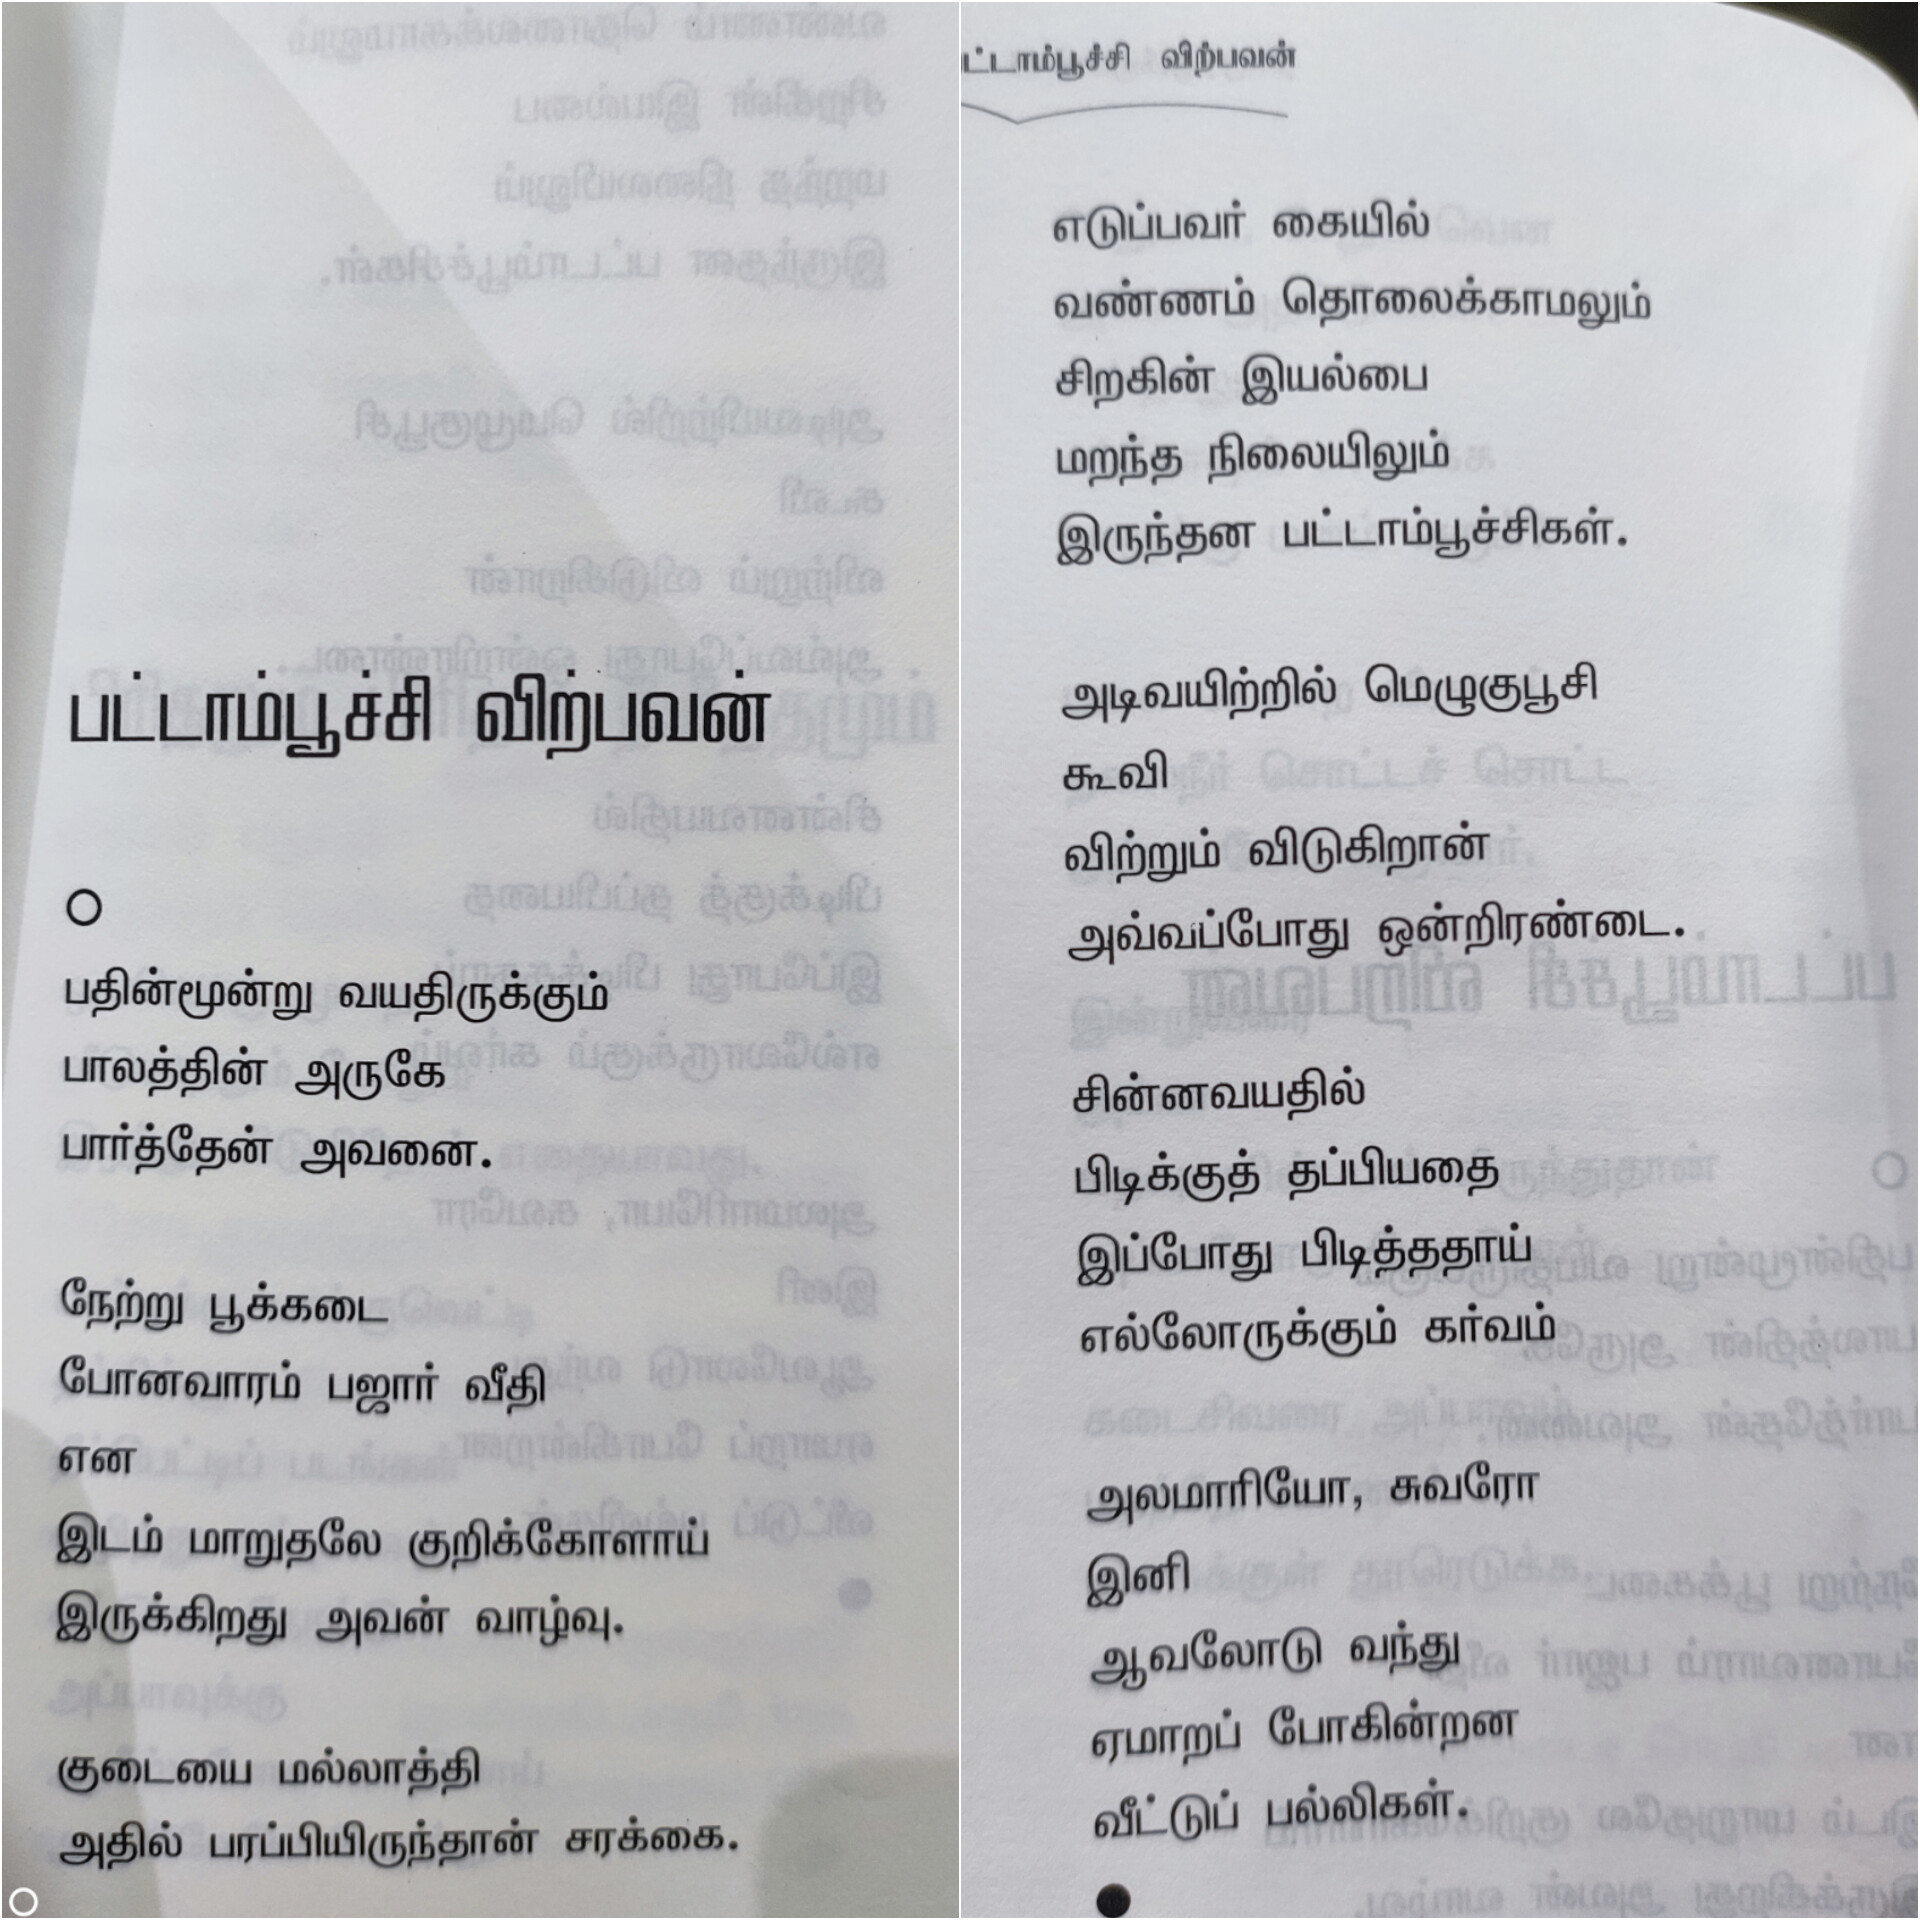 பட்டாம்பூச்சி விற்பவன்
பதின்மூன்று வயதிருக்கும்
பாலத்தின் அருகே
பார்த்தேன் அவனை.
நேற்று பூக்கடை
போனவாரம் பஜார் வீதி
என
இடம் மாறுதலே குறிக்கோளாய்
இருக்கிறது அவன் வாழ்வு.
குடையை மல்லாத்தி
அதில் பரப்பியிருந்தான் சரக்கை.
ட்டாம்பூச்சி விற்பவன்
எடுப்பவர் கையில்
வண்ணம் தொலைக்காமலும்
சிறகின் இயல்பை
மறந்த நிலையிலும்
இருந்தன பட்டாம்பூச்சிகள்.
அடிவயிற்றில் மெழுகுபூசி
கூவி
விற்றும் விடுகிறான்
அவ்வப்போது ஒன்றிரண்டை.
சின்னவயதில்
பிடிக்குத் தப்பியதை
இப்போது பிடித்ததாய்
எல்லோருக்கும் கர்வம்
அலமாரியோ, சுவரோ
இனி
ஆவலோடு வந்து
ஏமாறப் போகின்றன
வீட்டுப் பல்லிகள்.